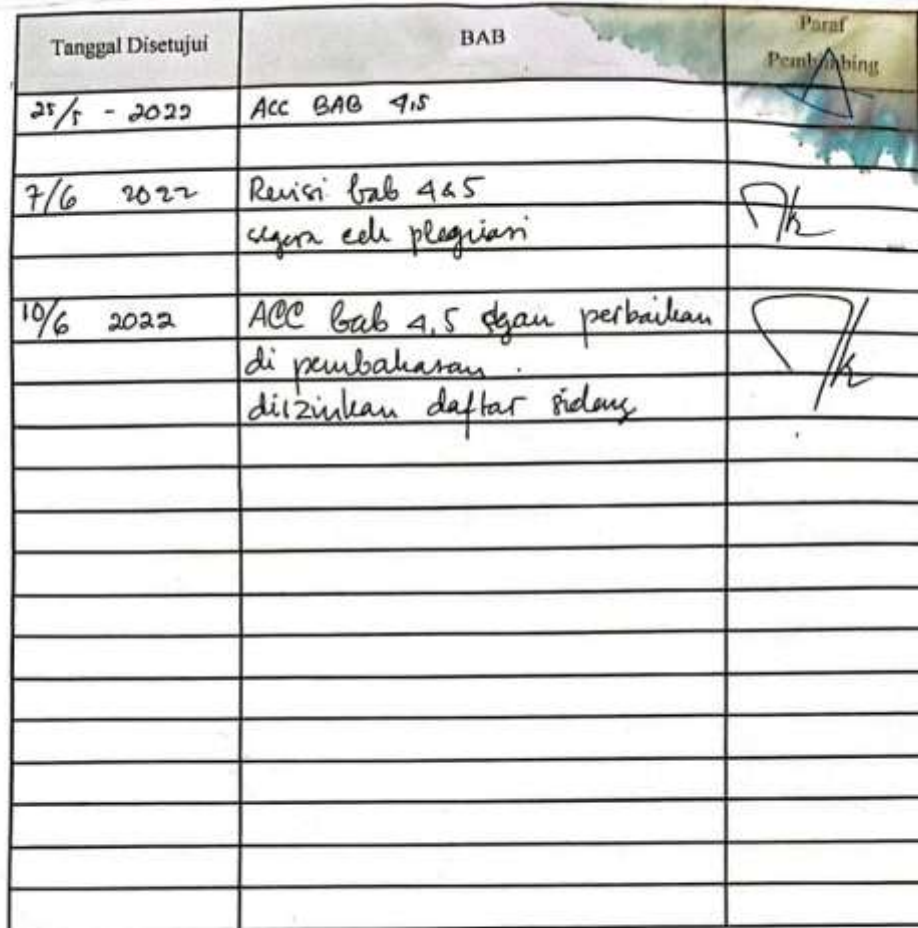 Tanggal Disetujui BAB Paraf
Pembimbing
25/5 - 2022 ACC BAB 4,5
7/6 2022 Revisi bab 4&5
segera cek plagiasi
10/6 2022 ACC bab 4,5 dgan perbaikan
di pembahasan.
diizinkan daftar sidang